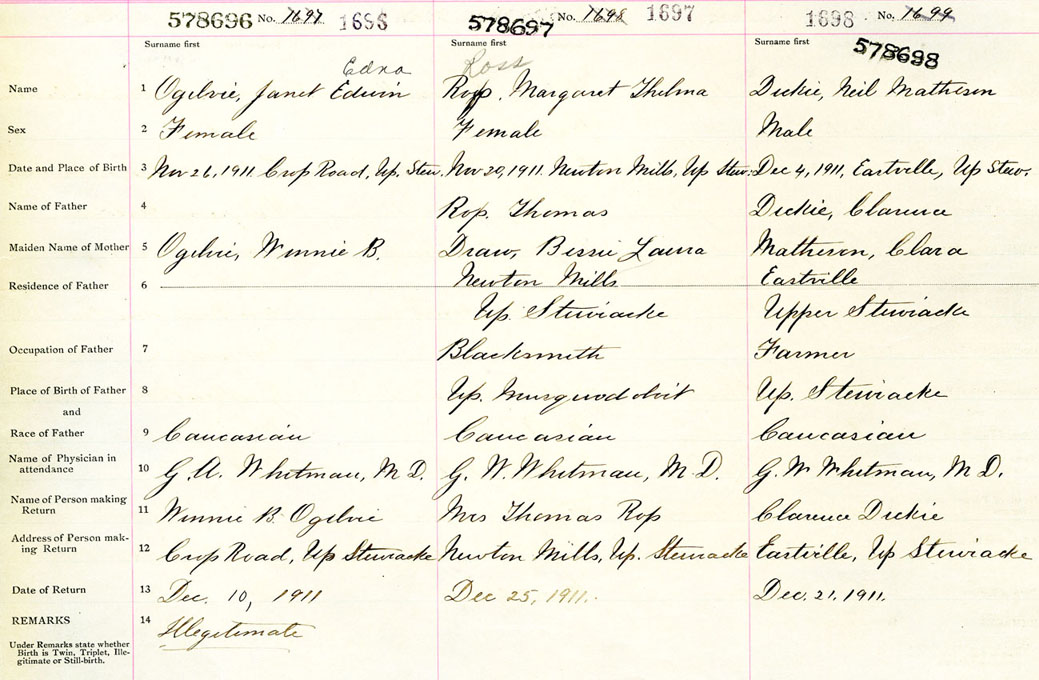 578696 No. 1697 1696
578697 No. 1698 1697
1698 No. 1699
578698
Surname first Surname first Surname first
Edna Ross
Name 1 Ogilvie, Janet Edwin Ross, Margaret Thelma Dickie, Neil Matheson
Sex 2 Female Female Male
Date and Place of Birth 3 Nov 26, 1911 Crop Road, Up. Stew. Nov 20, 1911. Newton Mills, Up Stew. Dec 4, 1911, Eastville, Up Stew.
Name of Father 4 Ross. Thomas Dickie, Clarence
Maiden Name of Mother 5 Ogilvie, Winnie B. Draw, Bessie Laura Matheson, Clara
Residence of Father 6 Newton Mills Eastville
Up. Stewiacke Upper Stewiacke
Occupation of Father 7 Blacksmith Farmer
Place of Birth of Father 8 Up. Musquodobit Up. Stewiacke
and
Race of Father 9 Caucasian Caucasian Caucasian
Name of Physician in
attendance 10 G. A. Whitman, M D. G. W. Whitman, M D. G. W Whitman, M D.
Name of Person making
Return 11 Winnie B. Ogilvie Mrs Thomas Ross Clarence Dickie
Address of Person mak-
ing Return 12 Crop Road, Up Stewiacke Newton Mills, Up. Stewiacke Eastville, Up Stewiacke
Date of Return 13 Dec. 10, 1911 Dec 25, 1911. Dec. 21, 1911.
REMARKS 14 Illegitimate
Under Remarks state whether
Birth is Twin, Triplet, Ille-
gitimate or Still-birth.